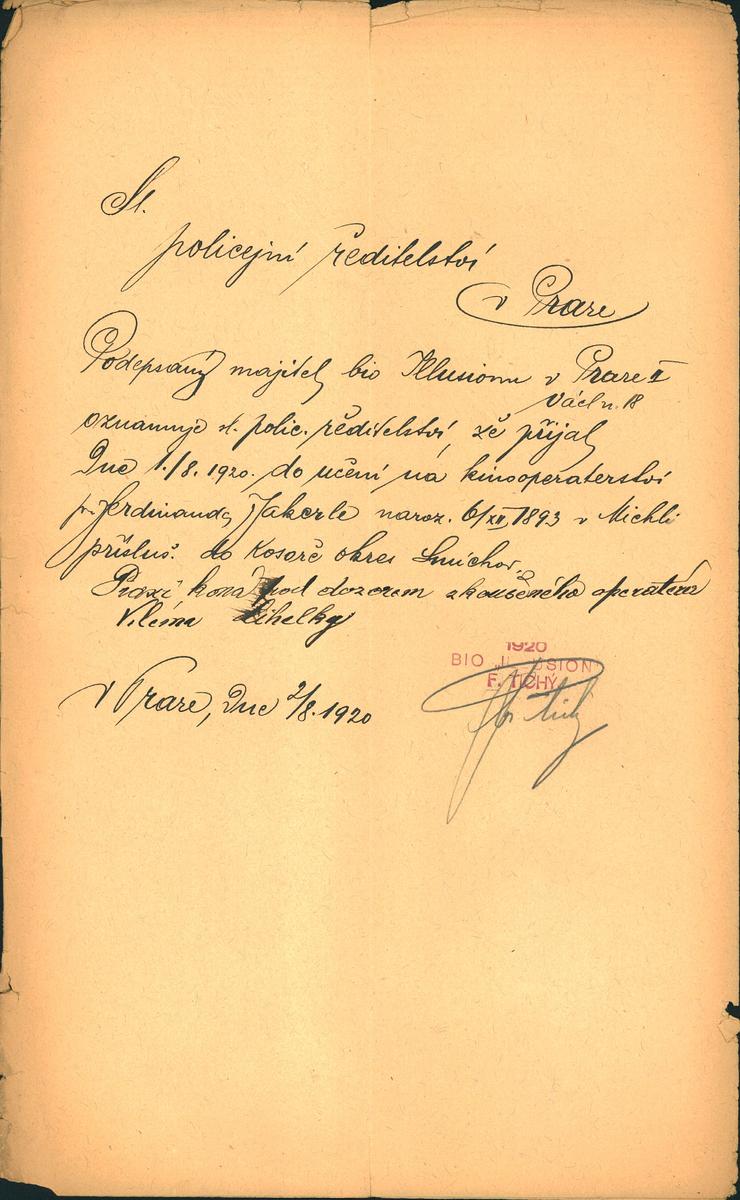 Sl.
policejní ředitelství
v Praze
Podepsaný majitel bio Illusionu v Praze II
Václ n. 18
oznamuje sl. polic. ředitelství, že přijal
Dne 1./8. 1920. do učení na kinooperaterství
p. Ferdinanda Jakerle naroz. 6/XII 1893 v Michli
přísluš. do Kosoře okres Smíchov.
Praxi koná pod dozorem zkoušeného operatéra
Viléma Lihelky
1920
BIO ILLUSION
F. TICHÝ
v Praze, Dne 2/8. 1920